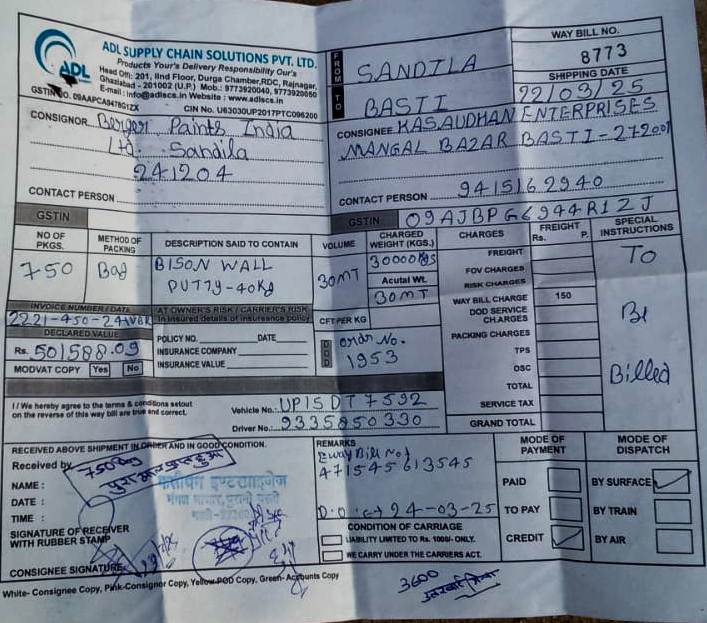 ADL SUPPLY CHAIN SOLUTIONS PVT. LTD.
Products Your's Delivery Responsibility Our's
Head Off: 201, IInd Floor, Durga Chamber, RDC, Rajnagar,
Ghaziabad - 201002 (U.P.) Mob.: 9773920040, 9773920050
E-mail : info@adlscs.in Website : www.adlscs.in
ADL
CIN No. U63030UP2017PTC096200
FROM SANDILA
TO BASTI
WAY BILL NO.
8773
SHIPPING DATE
22/03/25
CONSIGNOR Berger Paints India
Ltd. Sandila
241204
CONTACT PERSON
CONSIGNEE KASAUDHAN ENTERPRISES
MANGAL BAZAR BASTI-272001
CONTACT PERSON 9415162940
GSTIN
GSTIN 09AJBPG6944R1ZJ
NO OF PKGS.
METHOD OF PACKING
DESCRIPTION SAID TO CONTAIN
VOLUME
CHARGED WEIGHT (KGS.)
CHARGES
FREIGHT Rs. P.
SPECIAL INSTRUCTIONS
750
Bag
BISON WALL
PUTTY-40Kg
30MT
30000Kgs
Acutal Wt.
30MT
FREIGHT
FOV CHARGES
RISK CHARGES
WAY BILL CHARGE 150
DOD SERVICE CHARGES
PACKING CHARGES
TPS
OSC
TOTAL
SERVICE TAX
GRAND TOTAL
To
Be
Billed
INVOICE NUMBER / DATE
DECLARED VALUE
Rs. 501588.09
MODVAT COPY Yes No
AT OWNER'S RISK / CARRIER'S RISK
In insured details of insureance policy
POLICY NO. DATE
INSURANCE COMPANY
INSURANCE VALUE
CFT PER KG
Ordr No.
1953
I / We hereby agree to the terms & conditions setout
on the reverse of this way bill are true and correct.
Vehicle No.: UP15DT7592
Driver No.: 9335850330
RECEIVED ABOVE SHIPMENT IN ORDER AND IN GOOD CONDITION.
Received by
750 Bag
NAME :
DATE :
TIME :
SIGNATURE OF RECEIVER
WITH RUBBER STAMP
CONSIGNEE SIGNATURE
REMARKS
Eway Bill No.
471545613545
24-03-25
CONDITION OF CARRIAGE
LIABILITY LIMITED TO Rs. 1000/- ONLY.
WE CARRY UNDER THE CARRIERS ACT.
MODE OF PAYMENT
PAID
TO PAY
CREDIT
MODE OF DISPATCH
BY SURFACE
BY TRAIN
BY AIR
White- Consignee Copy, Pink-Consignor Copy, Yellow-POD Copy, Green- Accounts Copy
3600